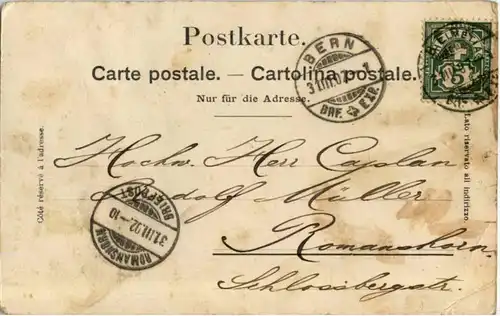 Postkarte.
Carte postale. — Cartolina postale.
Nur für die Adresse.
BERN
31.III.02
BRF. EXP.
5
Côté réservé à l'adresse.
Lato riservato all indirizzo.
Hochw. Herr Caplan
Rudolf Müller
Romanshorn.
Schlossbergstr.
ROMANSHORN
31.III.02.-10
BRIEFPOST